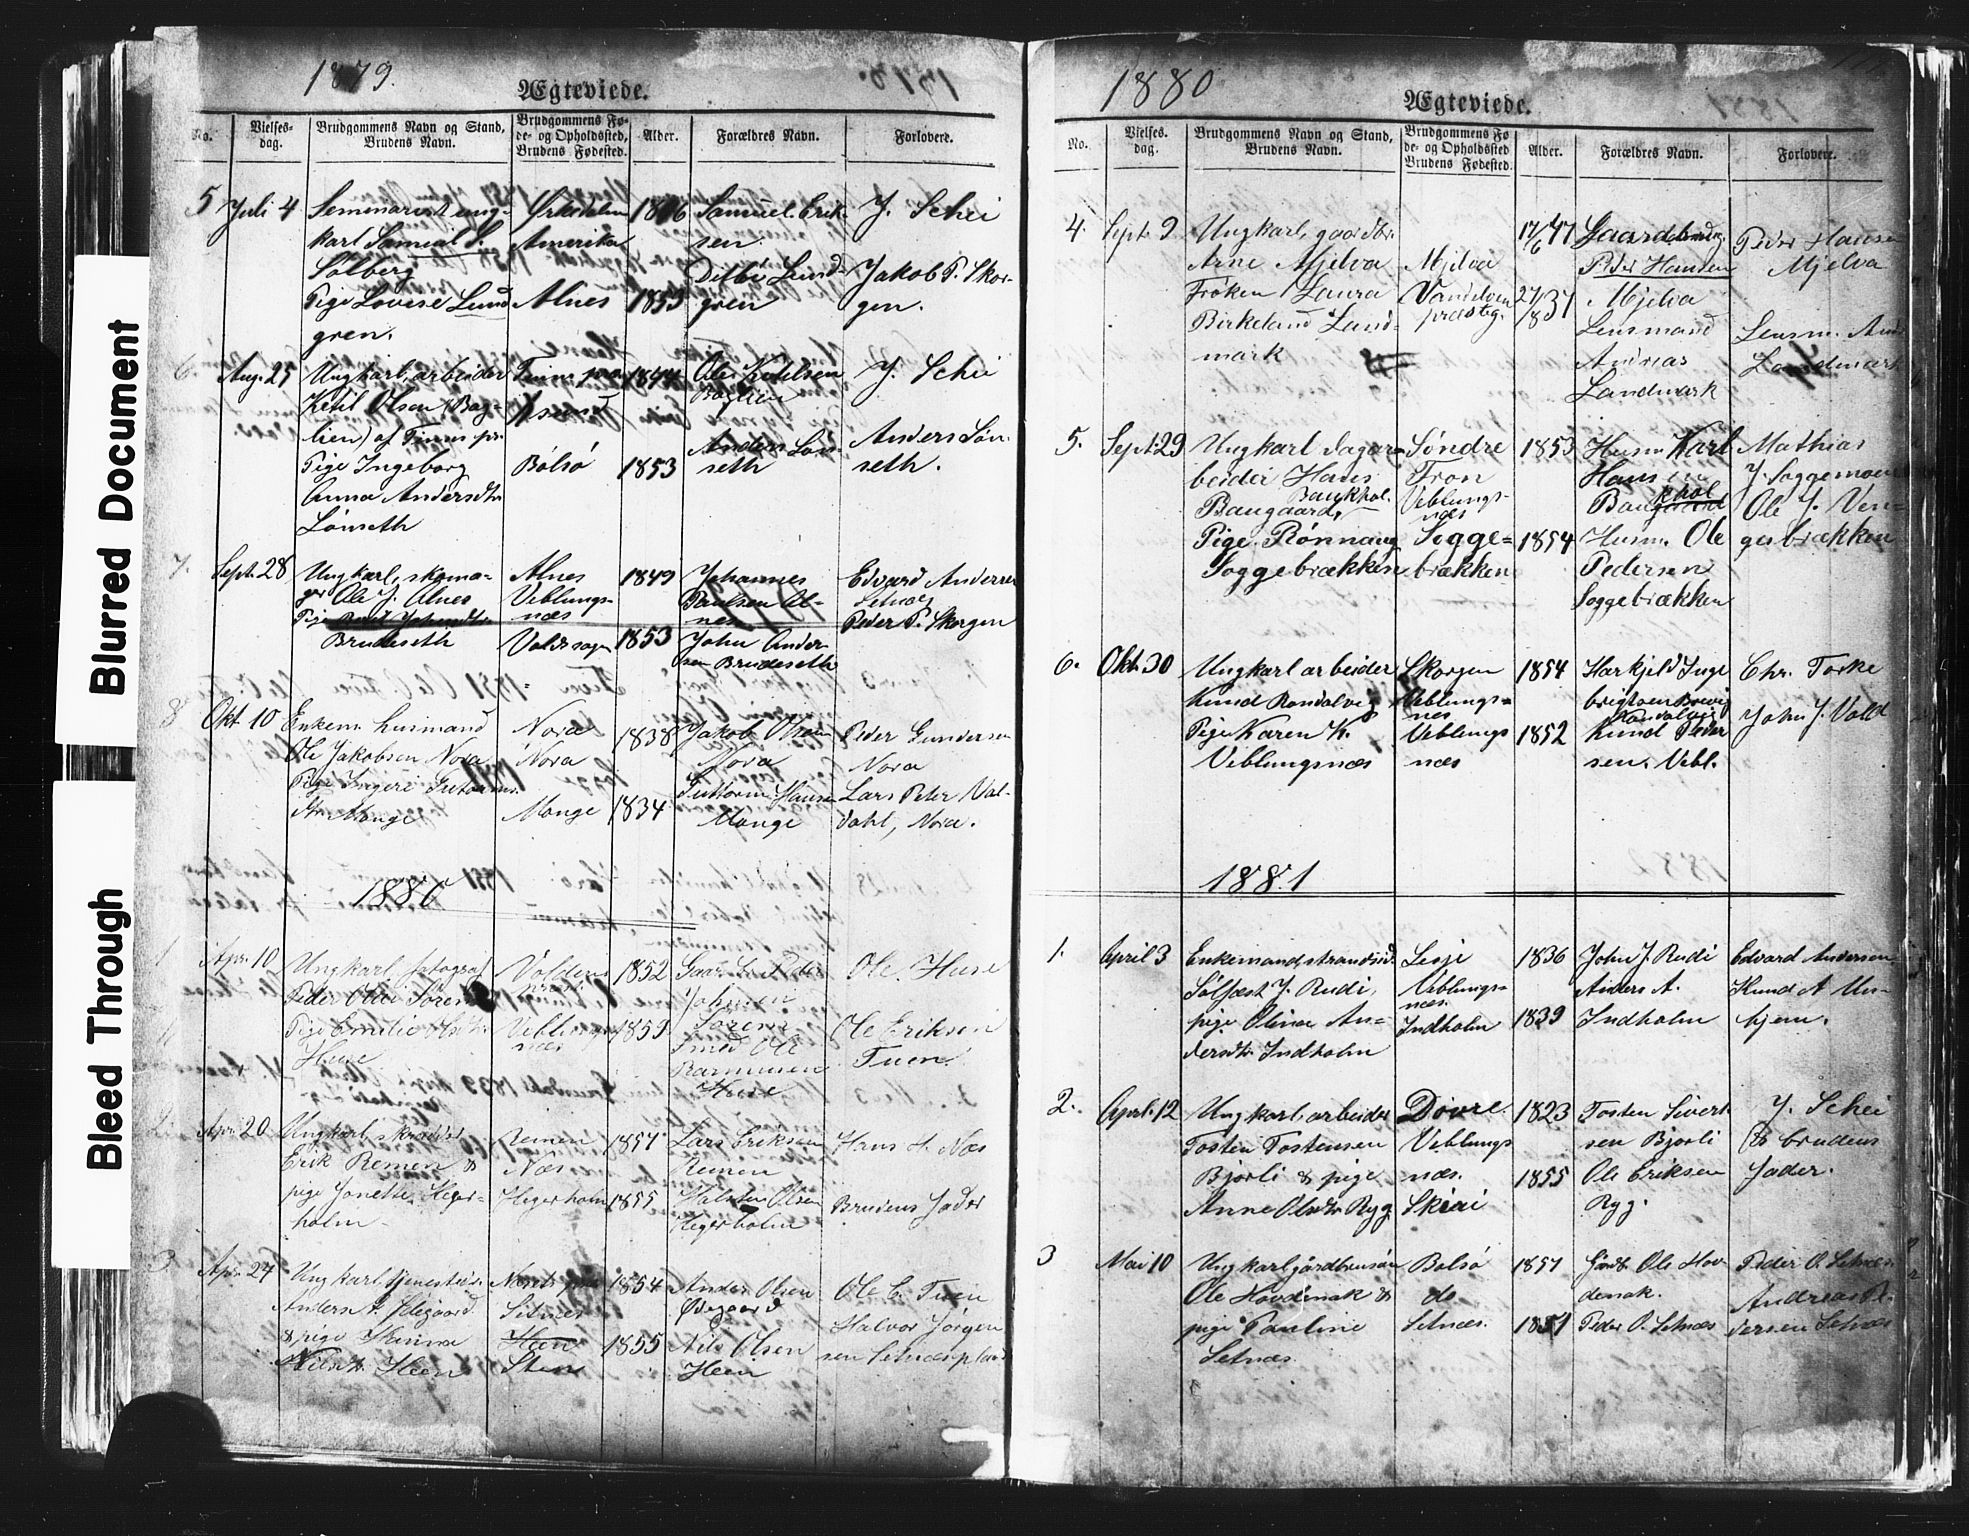 Blurred Document
Bleed Through
1879.
Ægteviede.
No.
Vielses-
dag.
Brudgommens Navn og Stand,
Brudens Navn.
Brudgommens Fø-
de- og Opholdssted,
Brudens Fødested.
Alder.
Forældres Navn.
Forlovere.
5 Juli 4
Seminarist ung-
karl Samuel S.
Solberg
Pige Lovise Lund-
gren.
Ørkedalen
Amerika
Alnes
1853
Samuel Erik-
sen
Lund-
gren
J. Schei
Jakob P. Skor-
gen.
6. Aug. 25
Ungkarl, arbeider
Ketil Olsen (Bag-
lien) af
Pige Ingeborg
Anna Andersdtr
Lönseth
Bolsö
1844
1853
Ole Ketilsen
Baglien
Anders Lön-
seth
J. Schei
Anders Lön-
seth.
7. Sept. 28
Ungkarl, skoma-
ger Ole J. Alnes
Pige
Brudeseth
Alnes
Veblungs-
næs
1849
1853
Johannes
Paulsen Al-
nes
John Ander-
sen Brudeseth
Edvard Andersen
Setnæs
Peder P. Skorgen
8 Okt. 10
Enkem. husmand
Ole Jakobsen Nora
Pige Ingeri Guttorms-
dtr Monge
Nora
Nora
Monge
1838
1834
Jakob Olsen
Nora
Guttorm Hansen
Monge
Peder Gundersen
Nora
Lars Peter Val-
dahl, Nora.
1880
1 Apr. 10
Ungkarl, fotograf
Peder Olai Sorens
Pige Emilie Olsdtr
Huse
Volden
Veblungs-
næs
1852
1859
Johnsen
Sorens
Smed Ole
Rasmussen
Huse
Ole Huse
Ole Eriksen
Tuen
2. Apr. 20
Ungkarl skrædder
Erik Remen &
pige Janette Heger-
holm
Remen
Næs
Hegerholm
1857
1855
Lars Eriksen
Remen
Halsten Olsen
Hegerholm
Hans H. Næs
Brudens Fader
3. Apr. 24
Ungkarl tjenestek.
Anders A. Ødegaard
& pige
Nilsdtr. Heen
Setnes
Heen
Sten
1854
1855
Anders Olsen
Ødegaard
Nils Olsen
Heen
Ole E. Tuen
Halvor Jörgen-
sen Setnæsplads
1880
Ægteviede.
No.
Vielses-
dag.
Brudgommens Navn og Stand,
Brudens Navn.
Brudgommens Fø
de- og Opholdssted
Brudens Fødested.
Alder.
Forældres Navn.
Forlovere.
4. Sept. 9
Ungkarl, gaardbr.
Arne Mjelva
Frøken Laura
Birkeland Land-
mark
Mjelva
Vanelven
præsteg.
17/6 47
27/8 37
Gaardbrug.
Peder Hansen
Mjelva
Lensmand
Andreas
Landmark
Peder Hansen
Mjelva
Lensm. And.
Landmark
5. Sept. 29
Ungkarl dagar-
beider Hans
Baukhol.
Baugaard,
Pige Rönnaug
Soggebrækken
Söndre
Fron
Veblungs-
næs
Sogge-
brækken
1853
1854
Husm. Karl
Hansen
Husm. Ole
Pedersen
Soggebrækken
Mathias
J. Soggemoen
Ole J. Ven-
gesbrækken
6. Okt. 30
Ungkarl arbeider
Knud Rondalvig
Pige Karen K.
Veblungsnæs
Skorgen
Veblungs-
næs
Veblungs
næs
1854
1852
Harkjeld Inge
brigtsen
Rondalvig
Knud Peder
sen. Vebl.
Chr. Torke
John J. Vold
1881
1. April 3
Enkemand, strandsid.
Solfæst J. Rudi,
pige Olina An-
dersdtr Indholm
Lesje
Veblungs-
næs.
Indholm
1836
1839
John J. Rudi
Anders A.
Indholm
Edvard Andersen
Knud A Un-
hjem.
2. April. 12
Ungkarl arbeider
Tosten Tostensen
Bjorli & pige
Anne Olsdtr Ryg
Dovre.
Veblungs
næs.
Skiai
1823
1855
Tosten Sivert
sen Bjorli
Ole Eriksen
Ryg.
J. Schei
& brudens
fader.
3 Mai 10
Ungkarl gårdbrusön
Ole Hovdenak &
pige Pauline
Setnæs.
Bolsö
do
Setnæs.
1857
1851
Gbr. Ole Hov-
denak.
Peder O. Setnæs
Peder O. Setnæs
Andreas Pe-
dersen Setnæs